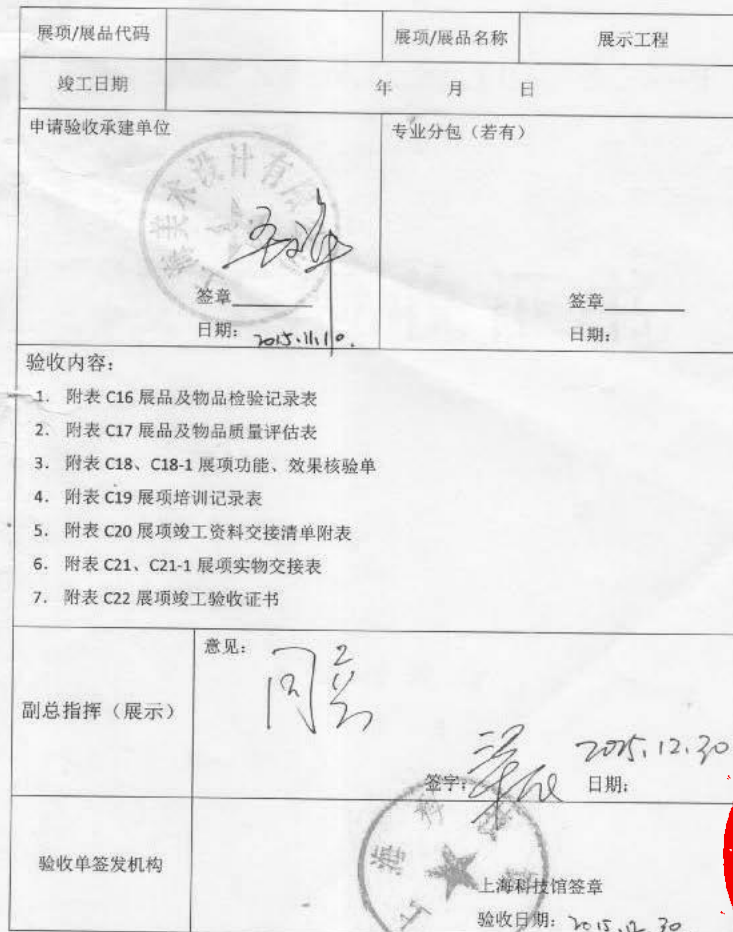 展项/展品代码 展项/展品名称 展示工程
竣工日期 年 月 日
申请验收承建单位 专业分包（若有）
上海美术设计有
签章 签章
日期：2015.11.10. 日期：
验收内容：
1. 附表 C16 展品及物品检验记录表
2. 附表 C17 展品及物品质量评估表
3. 附表 C18、C18-1 展项功能、效果核验单
4. 附表 C19 展项培训记录表
5. 附表 C20 展项竣工资料交接清单附表
6. 附表 C21、C21-1 展项实物交接表
7. 附表 C22 展项竣工验收证书
副总指挥（展示） 意见：
同意
签字： 日期：2015.12.30
验收单签发机构
上海科
上海科技馆签章
验收日期：2015.12.30